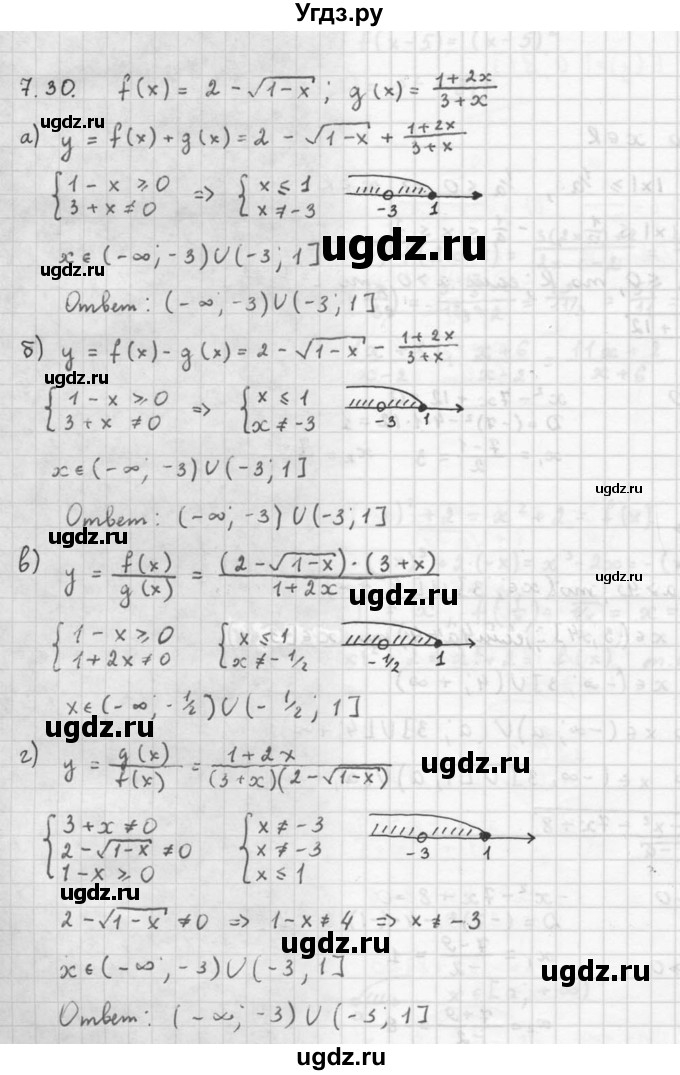 Угдз.ру
7.30. f(x) = 2 - √(1-x); g(x) = (1+2x)/(3+x)
ugdz.ru
а) y = f(x) + g(x) = 2 - √(1-x) + (1+2x)/(3+x)
{ 1 - x ≥ 0 => { x ≤ 1
{ 3 + x ≠ 0 { x ≠ -3
-3 1
x ∈ (-∞; -3) ∪ (-3; 1]
ugdz.ru
ugdz.ru
Ответ: (-∞; -3) ∪ (-3; 1]
б) y = f(x) - g(x) = 2 - √(1-x) - (1+2x)/(3+x)
ugdz.ru
{ 1 - x ≥ 0 => { x ≤ 1
{ 3 + x ≠ 0 { x ≠ -3
-3 1
x ∈ (-∞; -3) ∪ (-3; 1]
ugdz.ru
Ответ: (-∞; -3) ∪ (-3; 1]
в) y = f(x)/g(x) = ((2 - √(1-x))·(3+x))/(1+2x)
ugdz.ru
ugdz.ru
{ 1 - x ≥ 0 { x ≤ 1
{ 1 + 2x ≠ 0 { x ≠ -1/2
-1/2 1
x ∈ (-∞; -1/2) ∪ (-1/2; 1]
ugdz.ru
г) y = g(x)/f(x) = (1+2x)/((3+x)(2 - √(1-x)))
ugdz.ru
{ 3 + x ≠ 0 { x ≠ -3
{ 2 - √(1-x) ≠ 0 { x ≠ -3
{ 1 - x ≥ 0 { x ≤ 1
-3 1
ugdz.ru
2 - √(1-x) ≠ 0 => 1 - x ≠ 4 => x ≠ -3
ugdz.ru
x ∈ (-∞; -3) ∪ (-3; 1]
ugdz.ru
Ответ: (-∞; -3) ∪ (-3; 1]
ugdz.ru